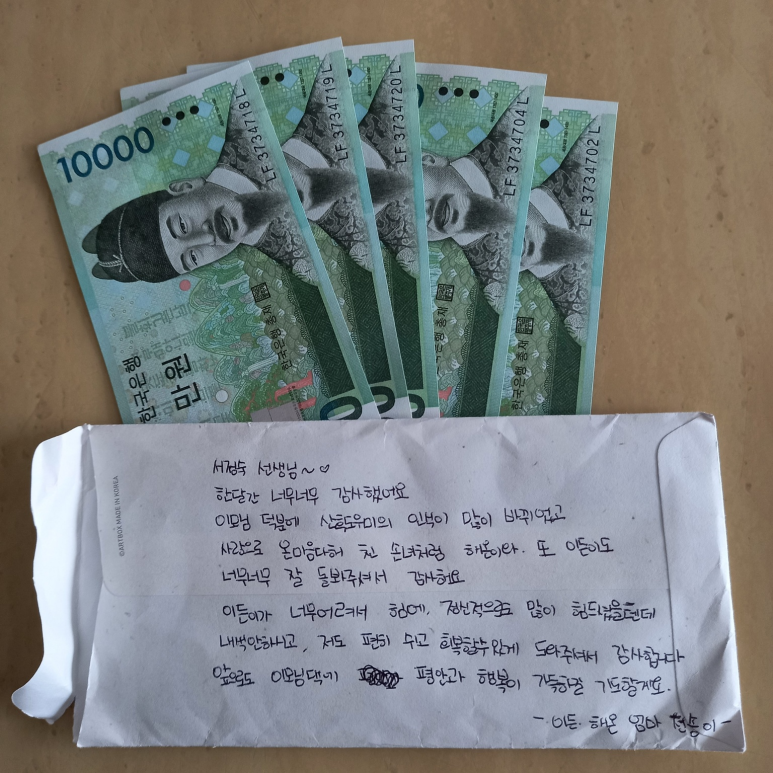 10000
LF 3734718 L
LF 3734719 L
LF 3734720 L
LF 3734704 L
LF 3734702 L
한국은행
만원
한국은행 총재
한국은행 총재
한국은행 총재
©ARTBOX MADE IN KOREA
선생님~♡
한달간 너무너무 감사했어요
이모님 덕분에 산후도우미의 인식이 많이 바뀌었고
사랑으로 온마음다해 친 손녀처럼 해온이랑 또 이든이도
너무너무 잘 돌봐주셔서 감사해요
이든이가 너무어려서 힘에, 정신적으로도 많이 힘드셨을텐데
내색안하시고, 저도 편히 쉬고 회복할수있게 도와주셔서 감사합니다
앞으로도 이모님댁에 평안과 행복이 가득하길 기도할게요.
- 이든.해온 엄마